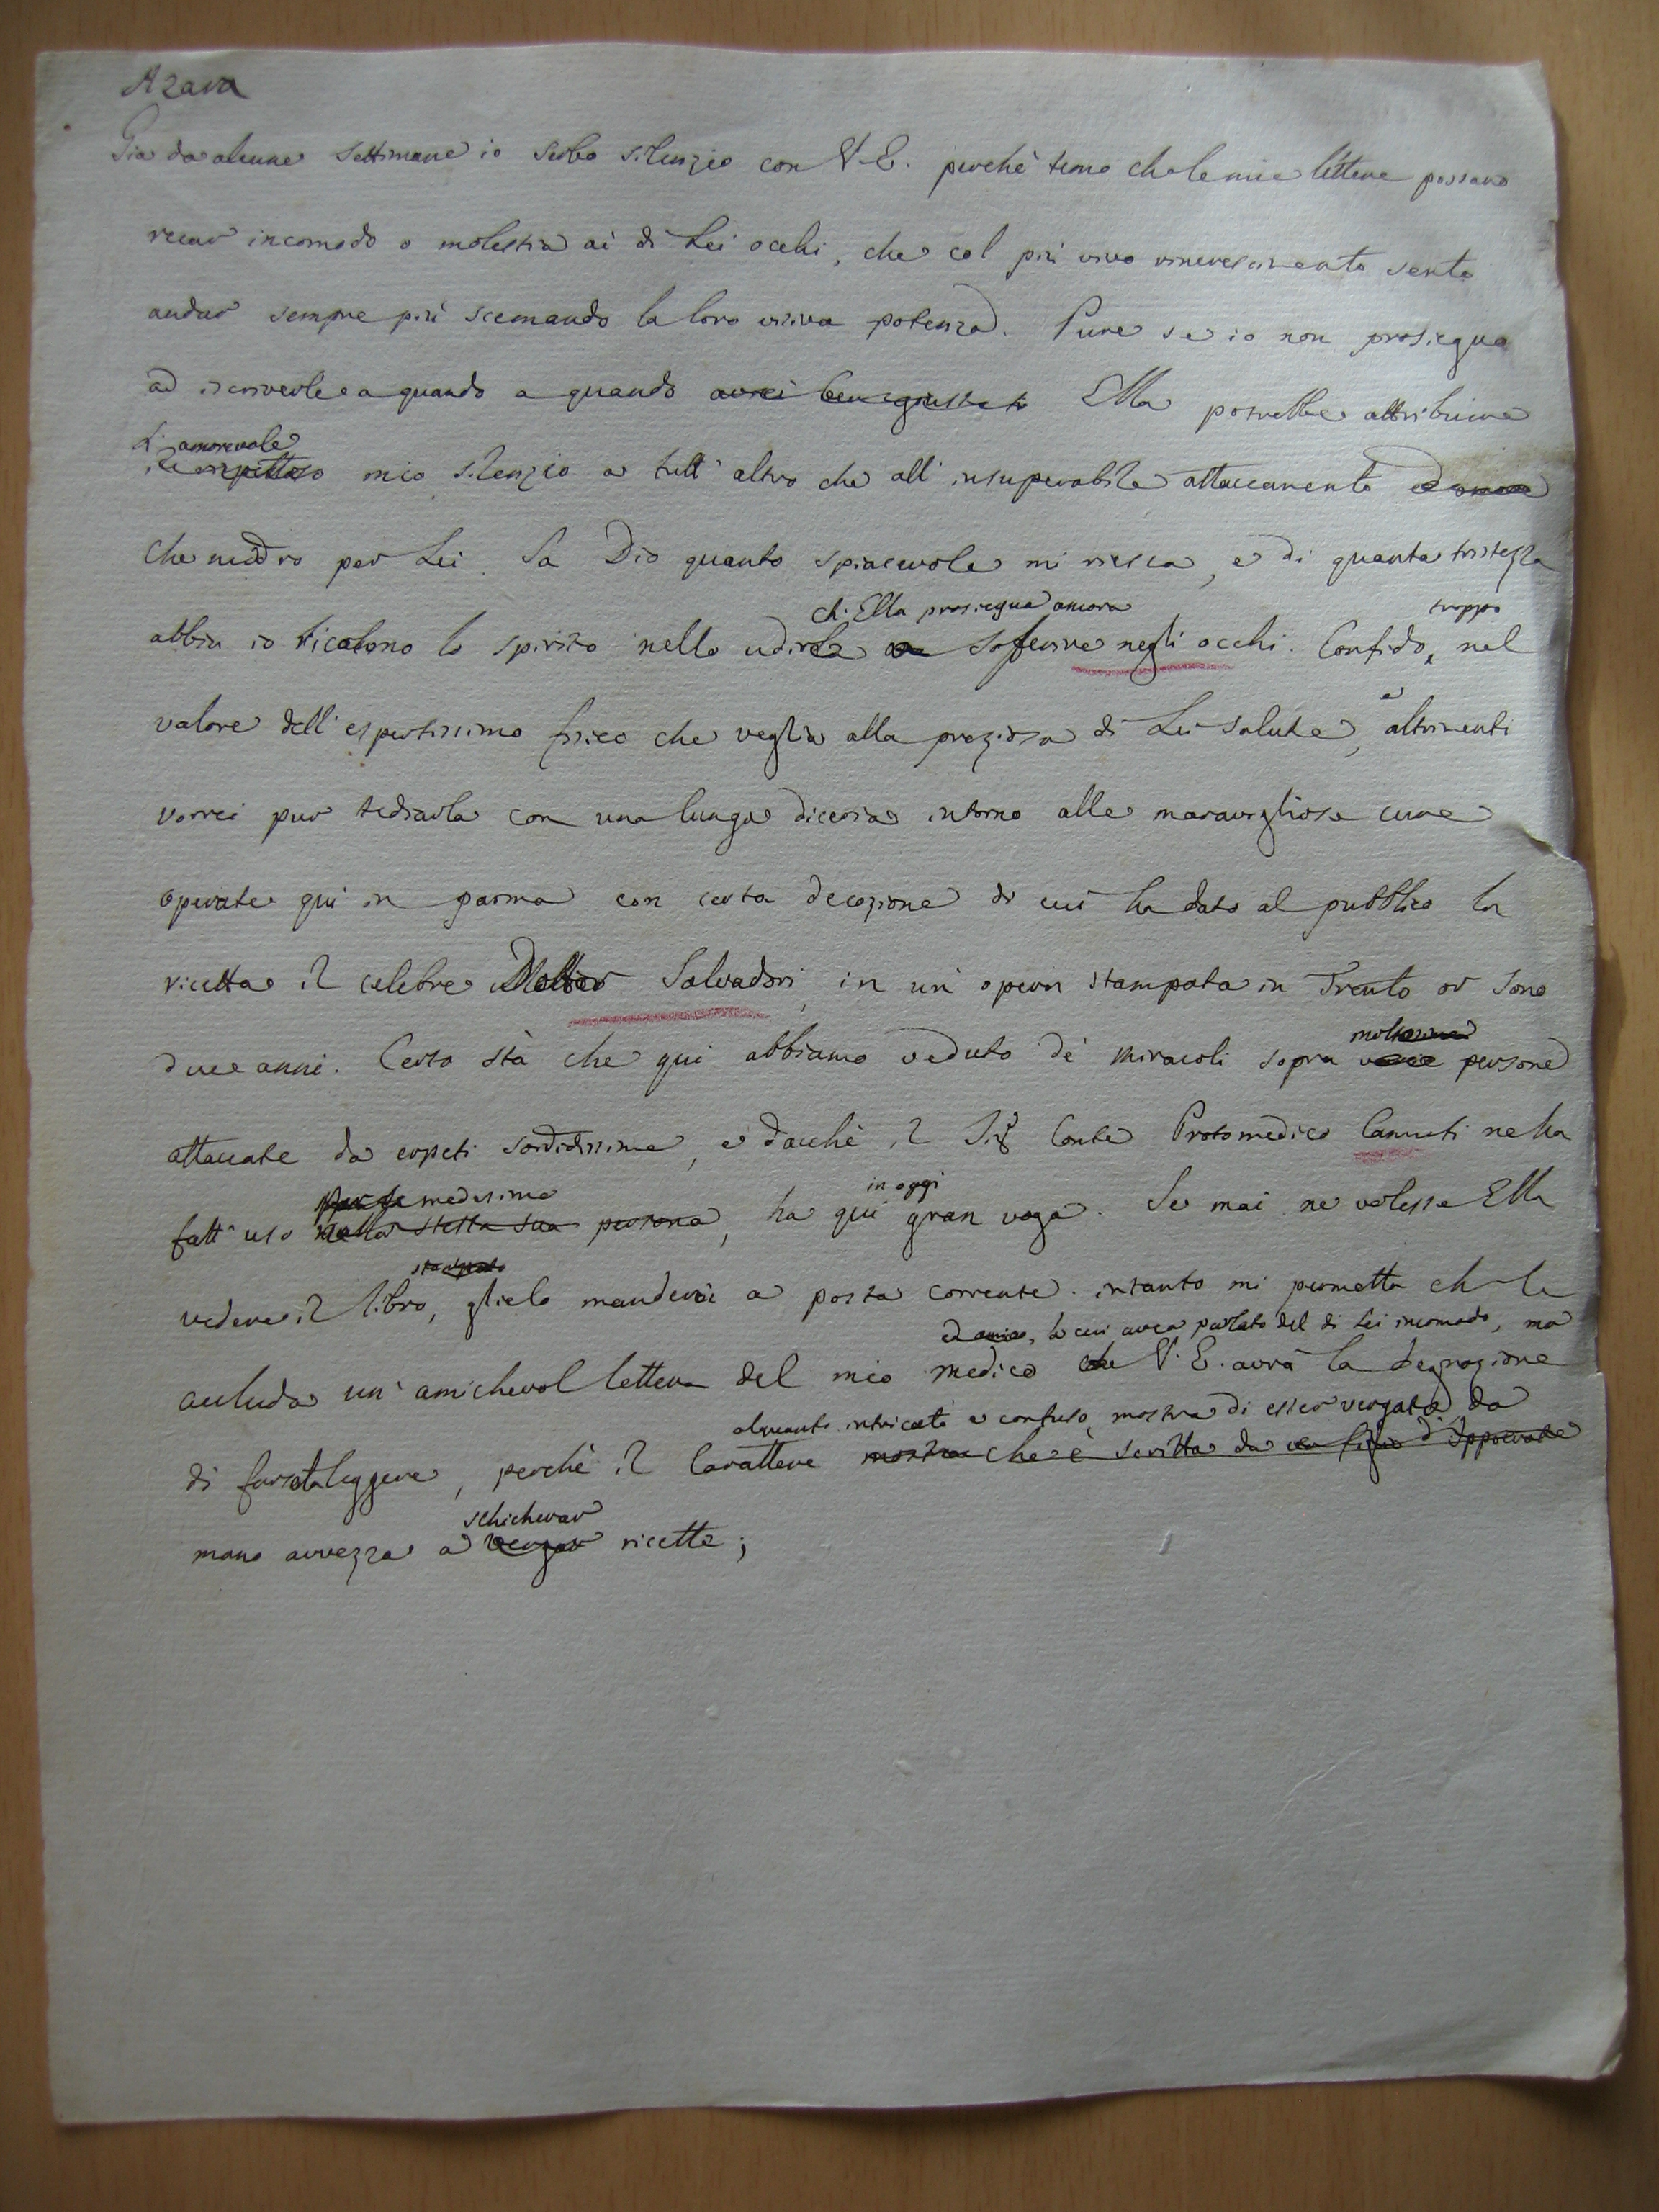 Azara
Già da alcune settimane io serbo silenzio con V. E. perchè temo che le mie lettere possano
recar incomodo o molestia ai di Lei occhi, che col più vivo rincrescimento sento
andar sempre più scemando la loro visiva potenza. Pure se io non prosiegua
ad iscriverle a quando a quando avrei ben giusta Ella potrebbe attribuire
L'amorevole
rispettoso mio silenzio a tutt' altro che all' insuperabile attaccamento ed amore
che nudro per Lei. Sa Dio quanto spiacevole mi riesca, e di quanta tristezza
ch' Ella prosiegua ancora troppo
abbia io ricolmo lo spirito nello udirla a sofferire negli occhi. Confido, nel
valore dell' espertissimo fisico che veglia alla preziosa di Lei salute, e altrimenti
vorrei pur tediarla con una lunga diceria intorno alle maravigliose cure
operate quì in parma con certa decozione di cui ha dato al pubblico la
ricetta il celebre Dottor Salvadori, in un' opera stampata in Trento or sono
moltissime
due anni. Certo stà che qui abbiamo veduto de' miracoli sopra varie persone
attaccate da erpeti sordidissime, e dacchè il Sig.r Conte Protomedico Camuti ne ha
per se medesimo in oggi
fatt' uso nella stessa sua persona, ha quì gran voga. Se mai ne volesse Ella
stampato
vedere il libro, glielo manderòi a posta corrente. intanto mi permetta ch le
ed amico, a cui avea parlato del di Lei incomodo, ma
accluda un' amichevol lettera del mio medico che V. E. avrà la degnazione
alquanto intricato e confuso, mostra di esser vergata da
di farsela leggere, perchè il carattere mostra che è scritta da un figlio d' Ippocrate
schicherar
mano avvezza a vergar ricette;